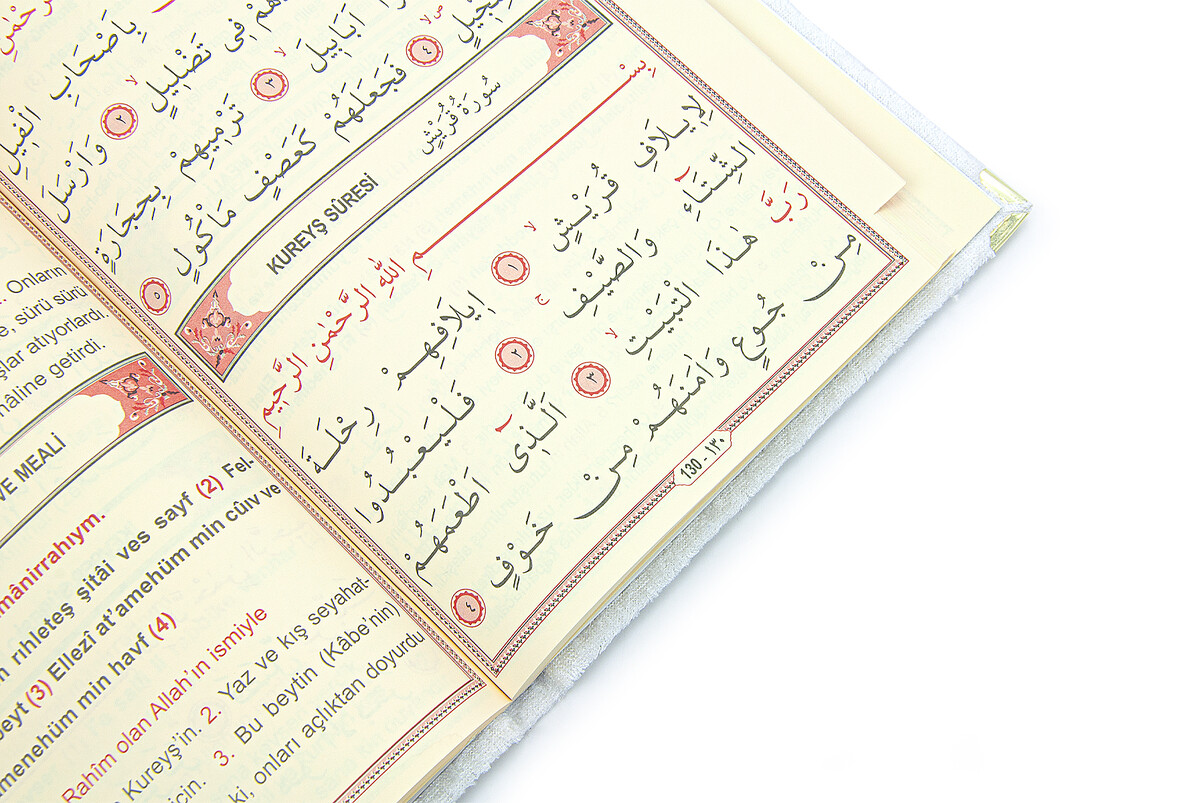 بِاَصْحَابِ الْفِيلِ
فِى تَضْلِيلٍ ﴿٢﴾ وَاَرْسَلَ
اَبَابِيلَ ﴿٣﴾ تَرْمِيهِمْ بِحِجَارَةٍ
سِجِّيلٍ ﴿٤﴾ فَجَعَلَهُمْ كَعَصْفٍ مَاْكُولٍ ﴿٥﴾
سُورَةُ قُرَيْشٍ KUREYŞ SÛRESİ
بِسْمِ اللّٰهِ الرَّحْمٰنِ الرَّحِيمِ
لِاِيلَافِ قُرَيْشٍ ﴿١﴾ اِيلَافِهِمْ رِحْلَةَ
الشِّتَٓاءِ وَالصَّيْفِ ﴿٢﴾ فَلْيَعْبُدُوا
رَبَّ هٰذَا الْبَيْتِ ﴿٣﴾ اَلَّذٓى اَطْعَمَهُمْ
مِنْ جُوعٍ وَاٰمَنَهُمْ مِنْ خَوْفٍ ﴿٤﴾
130 - ١٣٠
Onların
sürü sürü
atıyorlardı.
hâline getirdi.
VE MEALİ
rıhleteş şitâi ves sayf (2) Fel-
(3) Ellezî at'amehüm min cûıv ve
min havf (4)
Rahîm olan Allah'ın ismiyle
Kureyş'in. 2. Yaz ve kış seyahat-
için. 3. Bu beytin (Kâbe'nin)
ki, onları açlıktan doyurdu